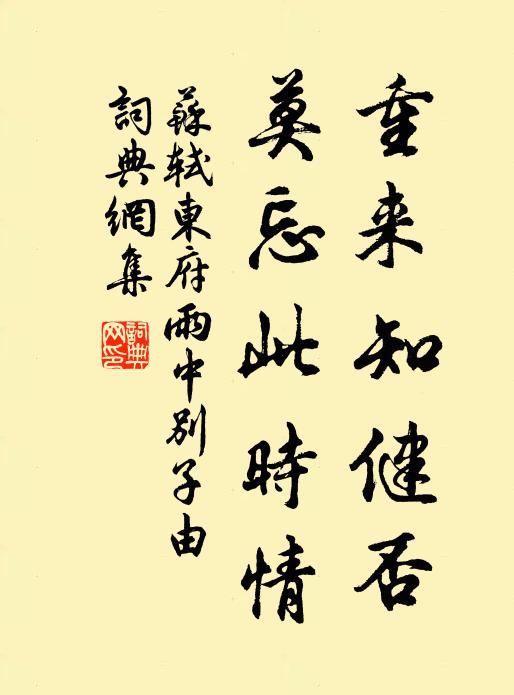 重来知健否
莫忘此時情
蘇軾東府雨中別子由
詞典網集
詞典網印